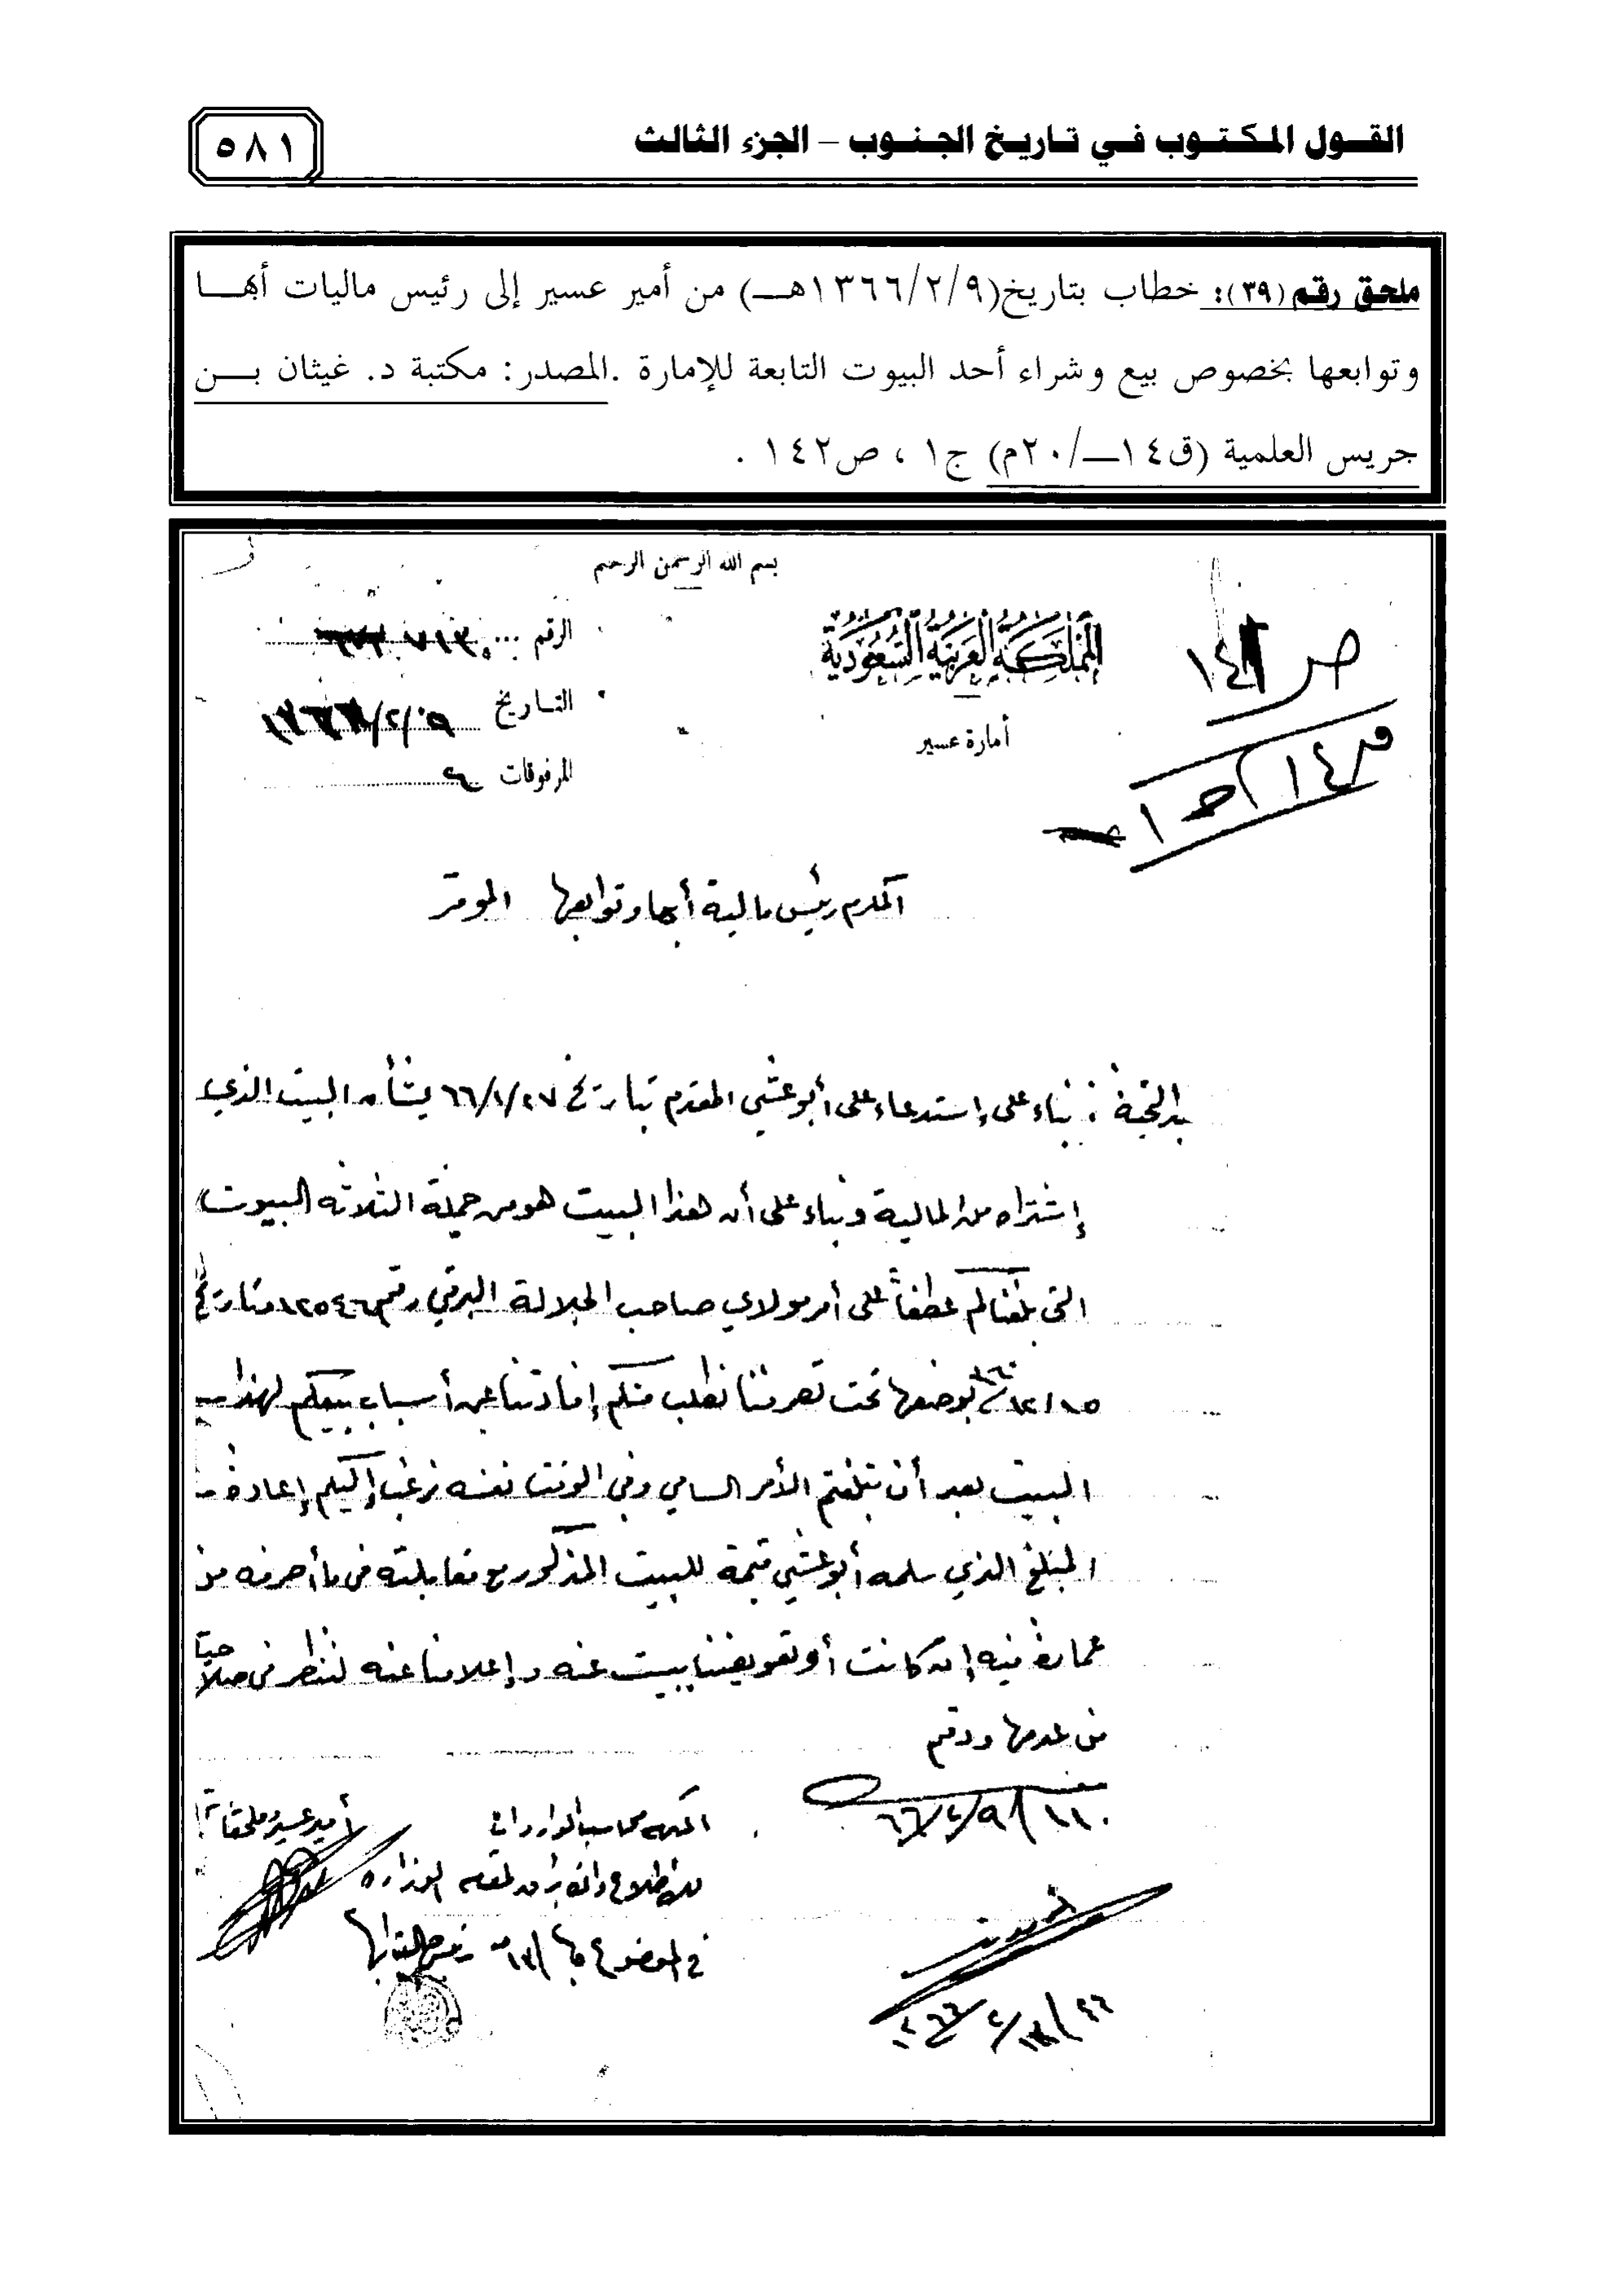 القول المكتوب في تاريخ الجنوب – الجزء الثالث
٥٨١
ملحق رقم (٣٩): خطاب بتاريخ(١٣٦٦/٢/٩هـ) من أمير عسير إلى رئيس ماليات أبها
وتوابعها بخصوص بيع وشراء أحد البيوت التابعة للإمارة .المصدر: مكتبة د. غيثان بن
جريس العلمية (ق١٤ـ/٢٠م) ج١ ، ص١٤٢ .
بسم الله الرحمن الرحيم
المملكة العربية السعودية
أمارة عسير
الرقم
التاريخ
المرفوقات
المكرم رئيس مالية أبها وتوابعها الموقر
بعد التحية : بناء على إستدعاء على أبو عشي المقدم بتاريخ ٦٦/١/٢٧ بشأن البيت الذي
إشتراه من المالية وبناء على أن هذا البيت هو من جملة الثلاثة البيوت
التي بلغناكم عطفاً على أمر مولاي صاحب الجلالة البرقي رقم ١٢٥٤٦ وتاريخ
١٢/١٥ بوضعها تحت تصرفنا نطلب منكم إفادتنا عن أسباب بيعكم لهذا
البيت بعد أن تبلغتم الأمر السامي وفي الوقت نفسه نرغب إليكم إعادة
المبلغ الذي سلمه أبو عشي قيمة للبيت المذكور مع مقابلته في ما أصرفه من
عمارة فيه إن كانت أو تعويضنا ببيت عنه وإعلامنا عنه لننظر في صلاحيتها
من عدمها ودمتم
أمير عسير وملحقاتها
المكرم محاسب الواردات
للاطلاع
في الموضوع